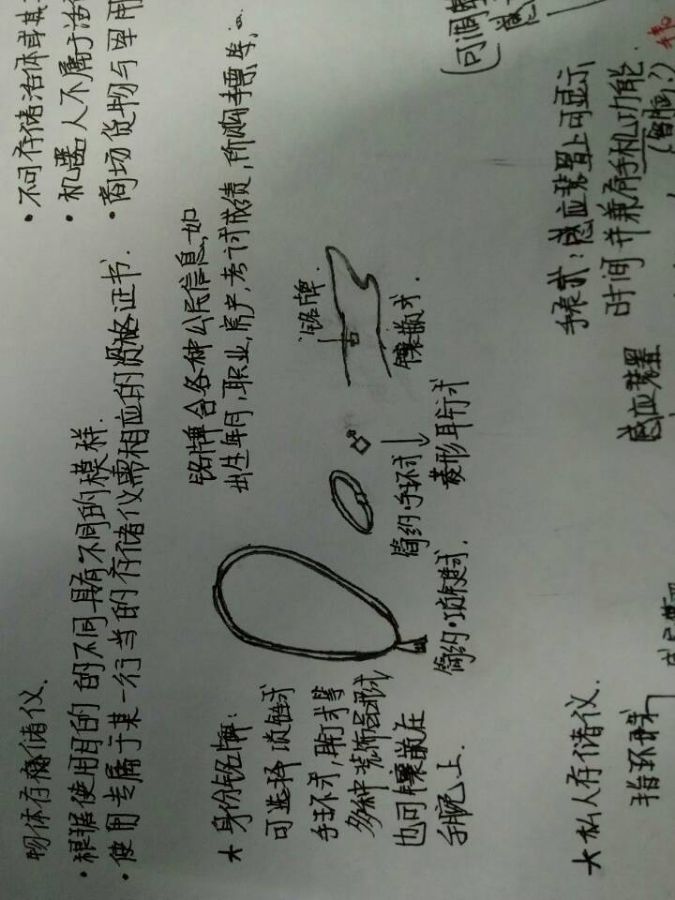 物体存储仪.
• 根据使用目的的不同具有不同的模样.
• 使用专属于某一行当的存储仪需相应的资格证书.
• 不同存储活体或其
• 机器人不属于活
• 商场货物与军用
* 身份铭牌:
可选择项链式
手环式,耳钉式等
多种装饰品形式
也可镶嵌在
手腕上.
铭牌含各种公民信息,如
出生年月,职业,房产,考试成绩,所购车票等,
简约·项链式.
简约·手环式
菱形耳钉式
铭牌.
镶嵌式.
(可调
* 私人存储仪.
指环式
感应装置
手表式:感应装置上可显示
时间并兼有手机功能
(智脑?)